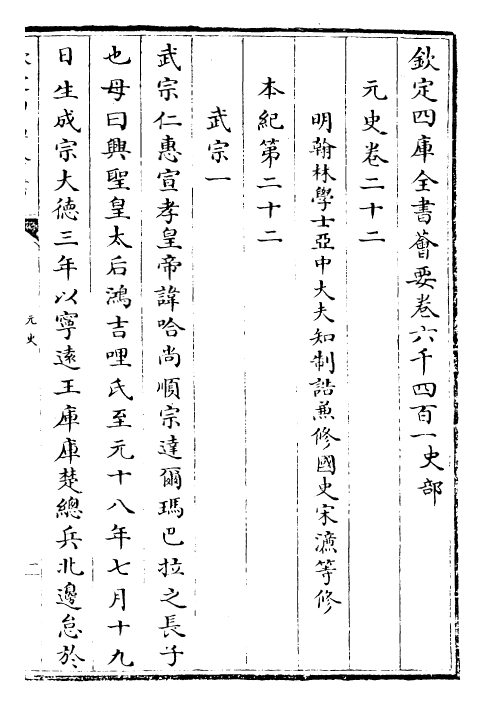 欽定四庫全書薈要卷六千四百一史部
元史卷二十二
明翰林學士亞中大夫知制誥兼修國史宋濂等修
本紀第二十二
武宗一
武宗仁惠宣孝皇帝諱哈尚順宗達爾瑪巴拉之長子
也母曰興聖皇太后鴻吉哩氏至元十八年七月十九
日生成宗大德三年以寧遠王庫庫楚總兵北邊怠於
元史